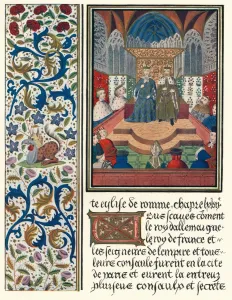 te eglise de romme. chapre lviij.
ous jacques coment
le roy dallemaigne
le roy de france et
les seigneurs de lempire et tous
leurs consaulx furent en la cite
de rains et eurent la entreulx
pluiseurs consaulx et secrets